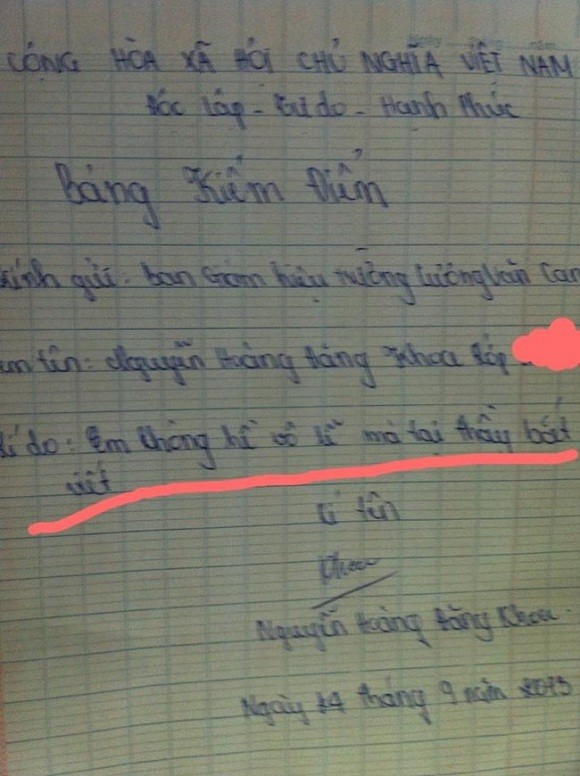 CÔNG HÒA XÃ HỘI CHỦ NGHĨA VIỆT NAM
Độc lập - Tự do - Hạnh Phúc
Bảng Kiểm Điểm
kính gửi: ban Giám hiệu trường Lương Văn Can
em tên: Nguyễn Hoàng Đăng Khoa lớp
Lí do: Em không hề vô lễ mà tại thầy bắt
viết
Kí tên
Khoa
Nguyễn Hoàng Đăng Khoa
Ngày 14 tháng 9 năm 2013